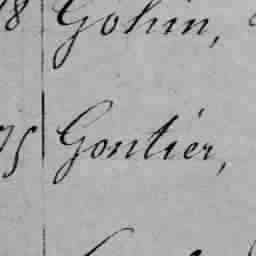 18 Gohin,
75 Gontier,